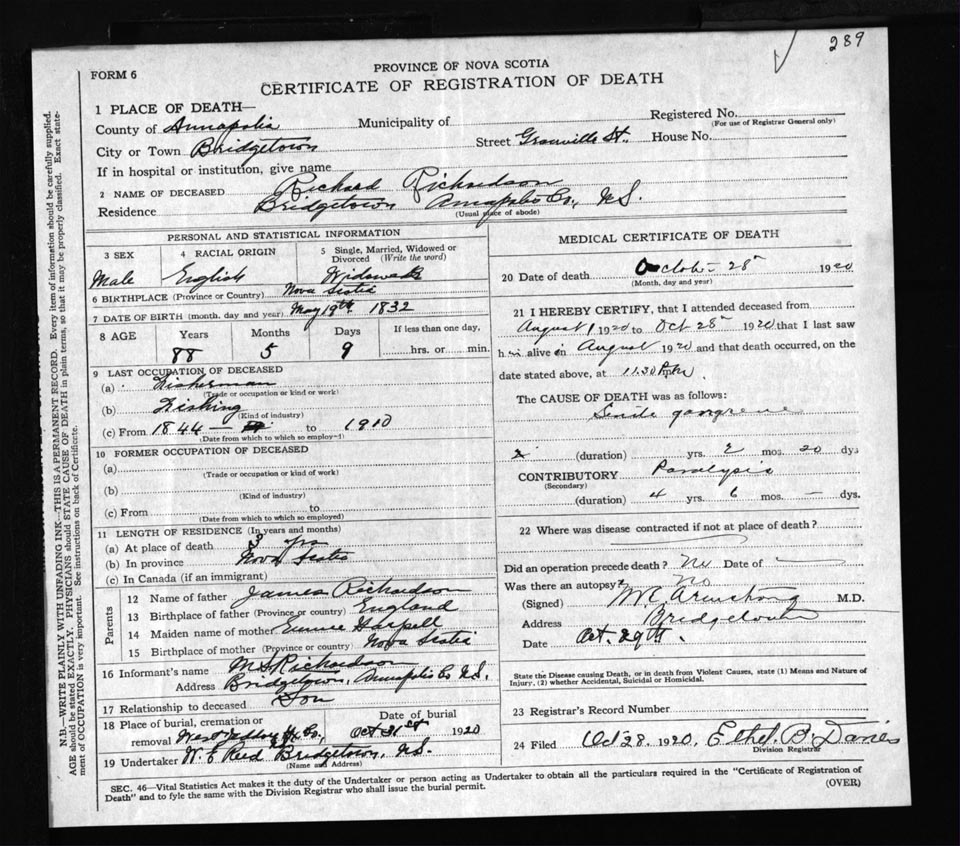 289
PROVINCE OF NOVA SCOTIA
FORM 6
CERTIFICATE OF REGISTRATION OF DEATH
1 PLACE OF DEATH—
County of Annapolis Municipality of Registered No.
(For use of Registrar General only)
City or Town Bridgetown Street Granville St., House No.
If in hospital or institution, give name
2 NAME OF DECEASED Richard Richardson
Residence Bridgetown Annapolis Co., N.S.
(Usual place of abode)
PERSONAL AND STATISTICAL INFORMATION
3 SEX 4 RACIAL ORIGIN 5 Single, Married, Widowed or Divorced (Write the word)
Male English Widower
6 BIRTHPLACE (Province or Country) Nova Scotia
7 DATE OF BIRTH (month, day and year) May 19th 1832
8 AGE Years Months Days If less than one day,
88 5 9 hrs. or min.
9 LAST OCCUPATION OF DECEASED
(a) Fisherman
(Trade or occupation or kind or work)
(b) Fishing
(Kind of industry)
(c) From 1844 — to 1910
(Date from which to which so employed)
10 FORMER OCCUPATION OF DECEASED
(a)
(Trade or occupation or kind of work)
(b)
(Kind of industry)
(c) From to
(Date from which to which so employed)
11 LENGTH OF RESIDENCE (In years and months)
(a) At place of death 3 yrs
(b) In province Nova Scotia
(c) In Canada (if an immigrant)
Parents
12 Name of father James Richardson
13 Birthplace of father (Province or country) England
14 Maiden name of mother Eunice Harpell
15 Birthplace of mother (Province or country) Nova Scotia
16 Informant's name M S Richardson
Address Bridgetown, Annapolis Co N.S.
17 Relationship to deceased Son
18 Place of burial, cremation or removal Date of burial
Hx. Co., Oct 31st 1920
19 Undertaker Reed Bridgetown, N.S.
(Name and Address)
MEDICAL CERTIFICATE OF DEATH
20 Date of death October 28 1920
(Month, day and year)
21 I HEREBY CERTIFY, that I attended deceased from
August 1 1920 to Oct 28 1920 that I last saw
him alive on August 1920 and that death occurred, on the
date stated above, at 11.30
The CAUSE OF DEATH was as follows:
Senile gangrene
(duration) yrs. 2 mos. 20 dys
CONTRIBUTORY Paralysis
(Secondary)
(duration) 4 yrs. 6 mos. — dys.
22 Where was disease contracted if not at place of death?
Did an operation precede death? No Date of
Was there an autopsy? No
(Signed) Armstrong M.D.
Address Bridgetown
Date Oct. 29th.
State the Disease causing Death, or in death from Violent Causes, state (1) Means and Nature of
Injury, (2) whether Accidental, Suicidal or Homicidal.
23 Registrar's Record Number
24 Filed Oct 28. 1920, Ethel B. Davies
Division Registrar
SEC. 46—Vital Statistics Act makes it the duty of the Undertaker or person acting as Undertaker to obtain all the particulars required in the "Certificate of Registration of
Death" and to fyle the same with the Division Registrar who shall issue the burial permit.
(OVER)
N.B.—WRITE PLAINLY WITH UNFADING INK—THIS IS A PERMANENT RECORD. Every item of information should be carefully supplied.
AGE should be stated EXACTLY. PHYSICIANS should STATE CAUSE OF DEATH in plain terms, so that it may be properly classified. Exact statement
of OCCUPATION is very important. See instructions on back of Certificate.